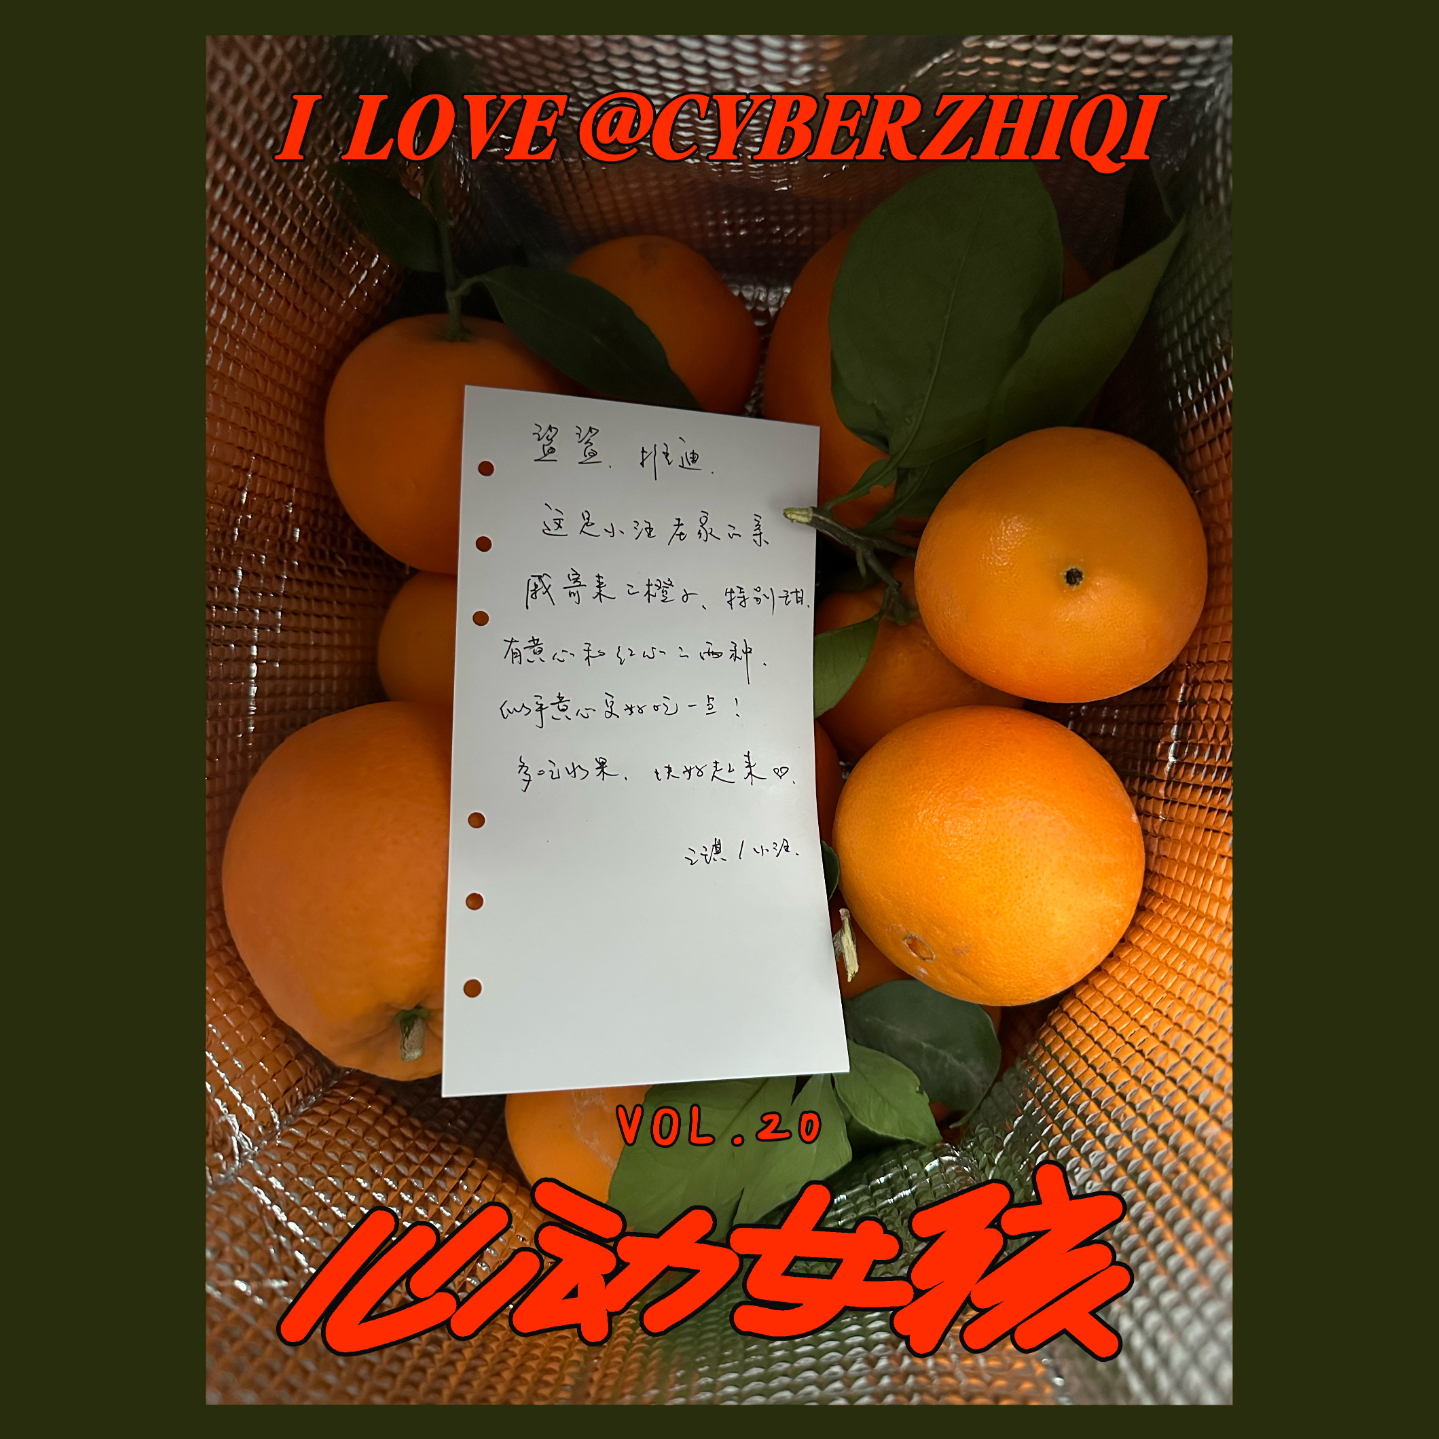 I LOVE @CYBERZHIQI
鲨鲨、推迪.
这是小汪老家的亲
戚寄来的橙子、特别甜.
有黄心和红心的两种.
似乎黄心更好吃一点！
多吃水果、快好起来♡.
之琪/小汪.
VOL.20
心动女孩